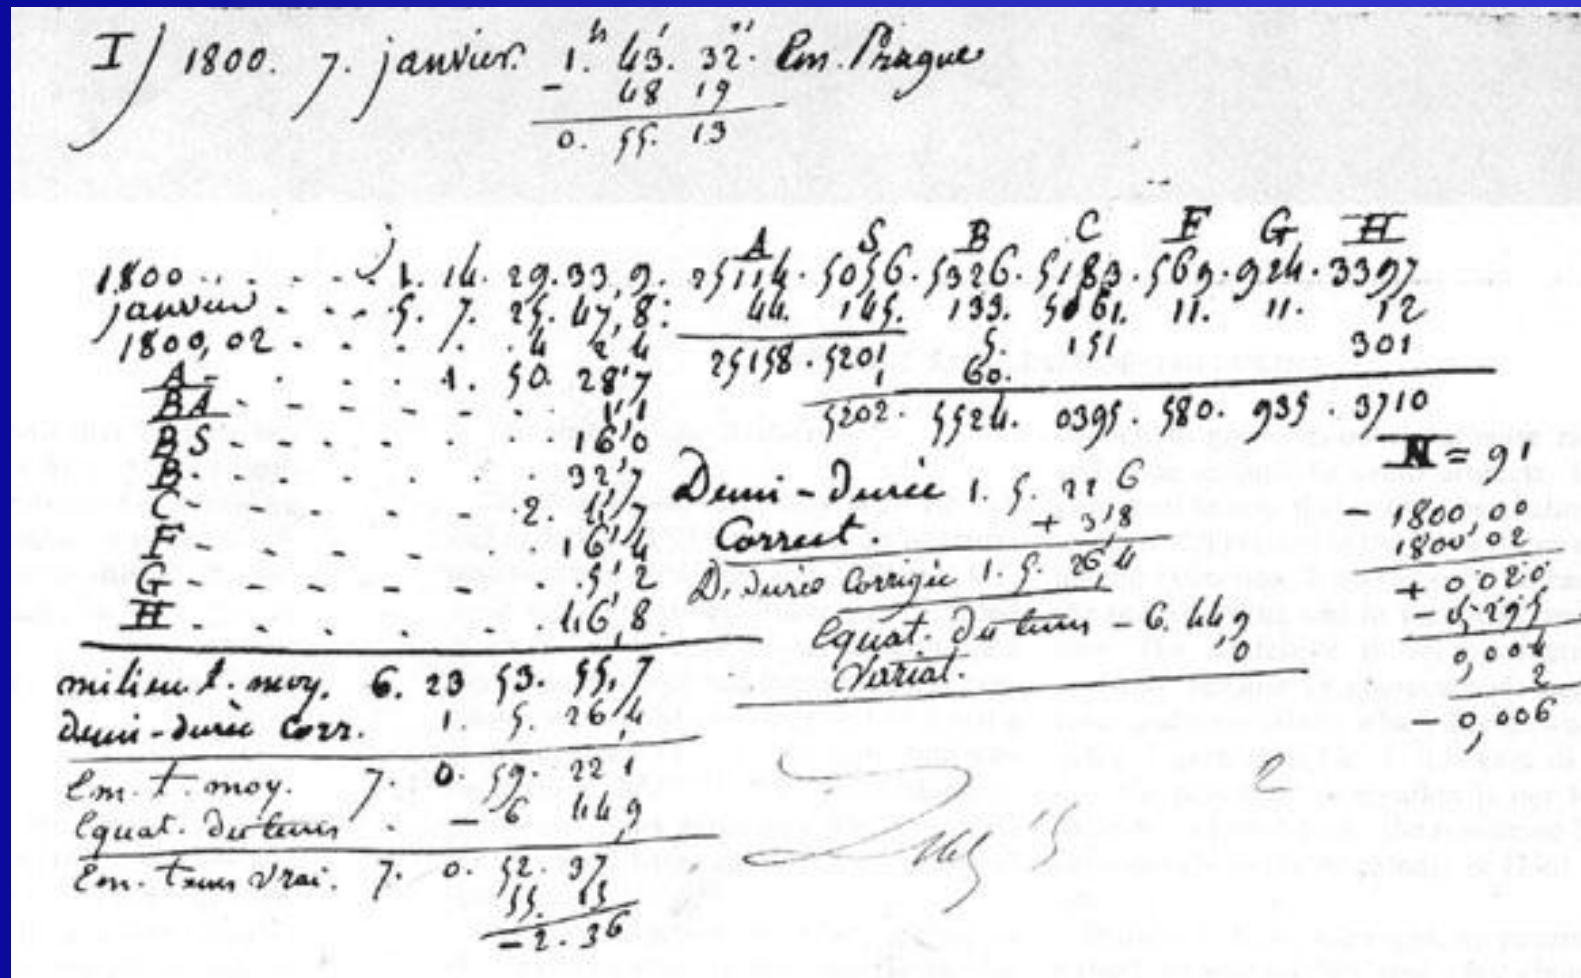 I) 1800. 7. janvier. 1.ʰ 43.′ 32.″ Em. Prague
- 48 19
0. 55. 13
A S B C F G H
1800 . . . . . j 1. 14. 29. 33,9. 25114. 5056. 5326. 5183. 569. 924. 3397
janvier . . . . 5. 7. 25. 47,8. 44. 145. 133. 5061. 11. 11. 12
1800,02 . . . . . 4 2,4 25158. 5201 5. 151 301
A - . . . . 1. 50. 28,7 1 60.
BA - - - - - - 1,1 5202. 5524. 0395. 580. 935. 3710
BS - - - - - 16,0 N = 91
B - . . . . . 32,7 Demi-durée 1. 5. 22 6
C - - - - . 2. 11,7 Correct. + 3,8 - 1800,00
F - - - - 16,4 1800,02
G - - - - 5,2 D. durée Corrigée 1. 5. 26,4 + 0 020
H . . . . . 46,8. Equat. du tems - 6. 44,9 0,295
milieu t. moy. 6. 23 53. 55,7 Variat. 0 0,004
demi-durée Corr. 1. 5. 26,4 2
- 0,006
Em. t. moy. 7. 0. 59. 22,1
Equat. du tems . - 6 44,9
Em. tems vrai. 7. 0. 52. 37
55. 13
- 2. 36